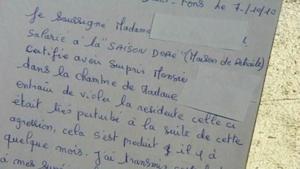 Fons Le 7/10/10
Je soussigne Madame
salarié à la "SAISON DORÉ" (Maison de Retraite)
Certifie avoir surpris Monsieur
dans la chambre de Madame
entrain de violer la residente cette ci
était très perturbé à la suite de cette
agression, cela s'est produit il y à
quelque mois. J'ai transmis
à mes